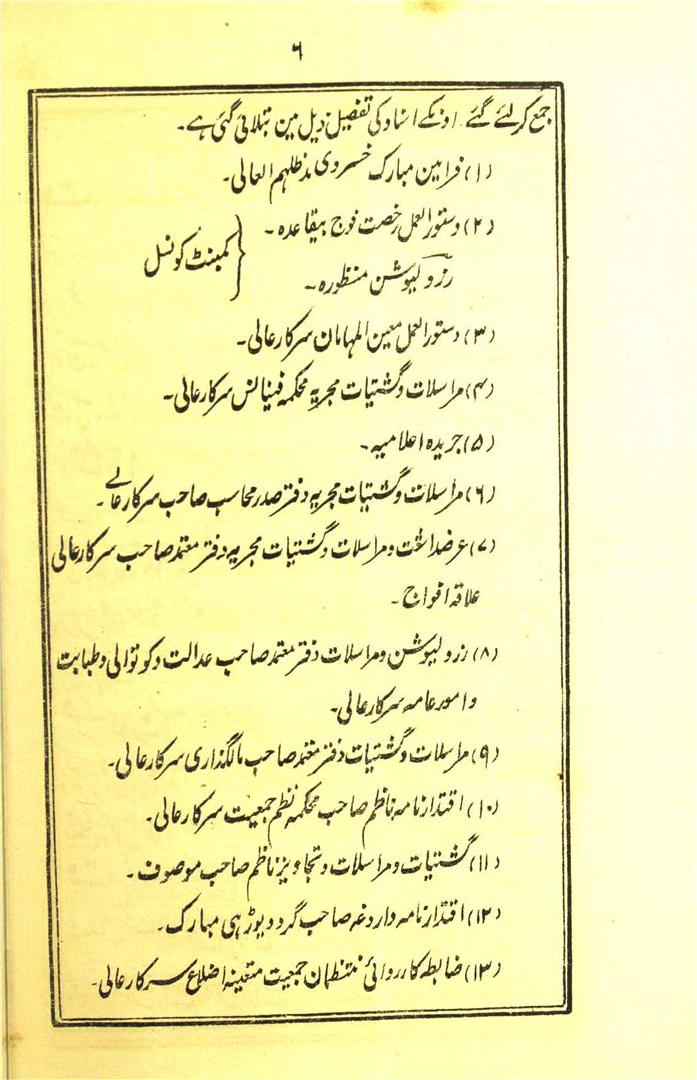 ۶
جمع کر لئے گئے اونکے اسناد کی تفصیل ذیل مین بتلائی گئی ہے۔
(۱) فرامین مبارک خسروی مدظلہم العالی۔
(۲) دستورالعمل رخصت فوج بیقاعدہ۔
رزولیوشن منظورہ۔
کمبنٹ کونسل
(۳) دستورالعمل معین المہامان سرکارعالی۔
(۴) مراسلات وگشتیات مجریہ محکمہ فینانس سرکارعالی۔
(۵) جریدہ اعلامیہ۔
(۶) مراسلات وگشتیات مجریہ دفتر صدر محاسب صاحب سرکارعالے۔
(۷) عرضداشت ومراسلات وگشتیات مجریہ دفتر معتمد صاحب سرکارعالی
علاقہ افواج۔
(۸) رزولیوشن ومراسلات دفتر معتمد صاحب عدالت وکوتوالی وطبابت
وامورعامہ سرکارعالی۔
(۹) مراسلات وگشتیات دفتر معتمد صاحب مالگذاری سرکارعالی۔
(۱۰) اقتدارنامہ ناظم صاحب محکمہ نظم جمعیت سرکارعالی۔
(۱۱) گشتیات ومراسلات وتجاویز ناظم صاحب موصوف۔
(۱۲) اقتدارنامہ داردغہ صاحب گرد دیوڑہی مبارک۔
(۱۳) ضابطہ کارروائی منتظمان جمعیت متعینہ اضلاع سرکارعالی۔